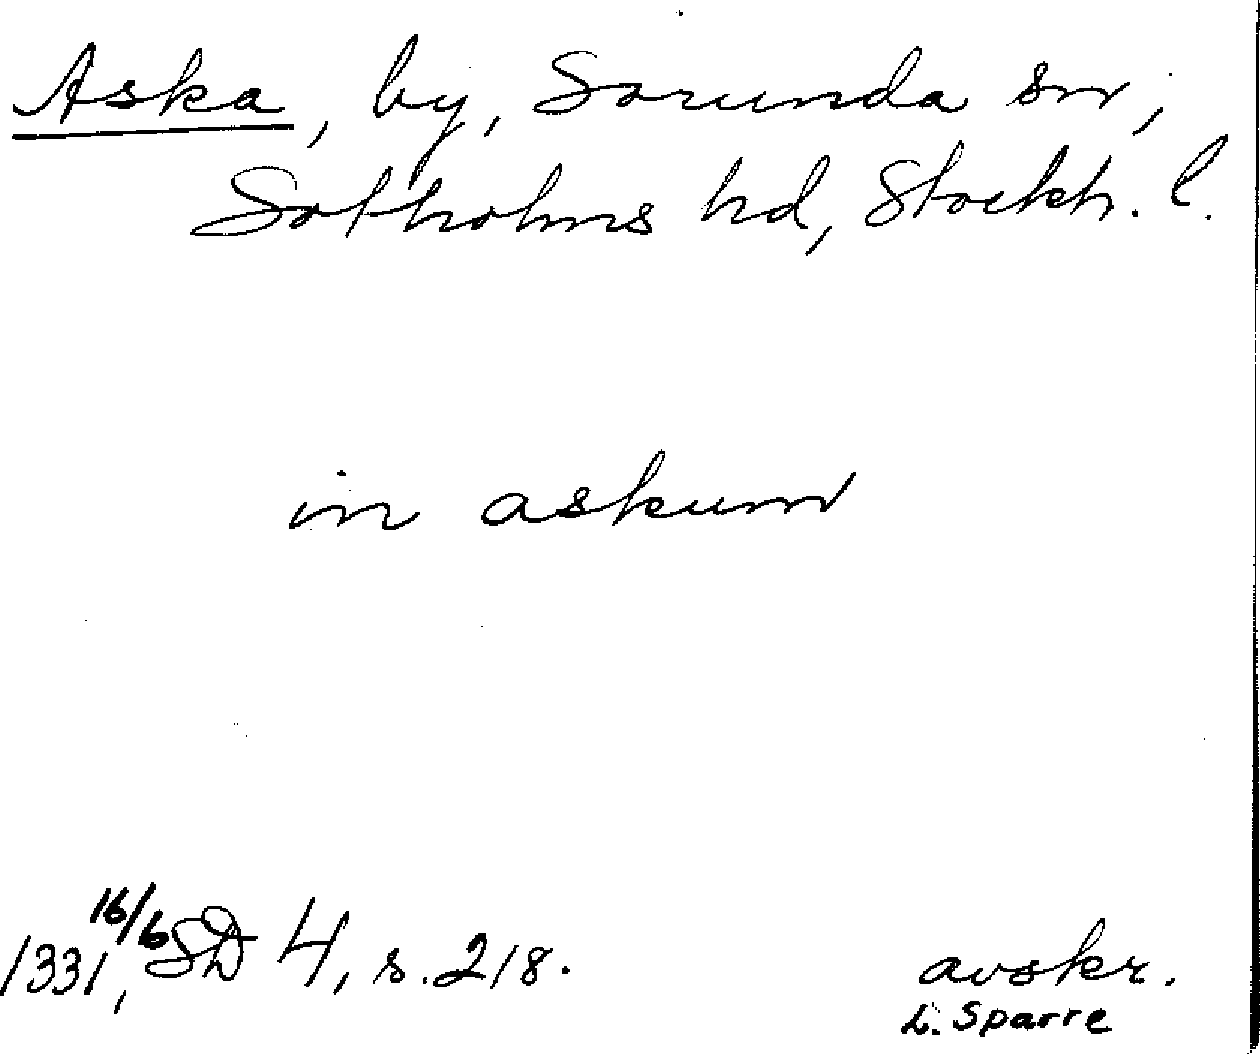 Aska, by, Sorunda sn,
Sotholms hd, Stockh. l.
in askum
1331 16/6, SD 4, s. 218.
avskr.
L. Sparre